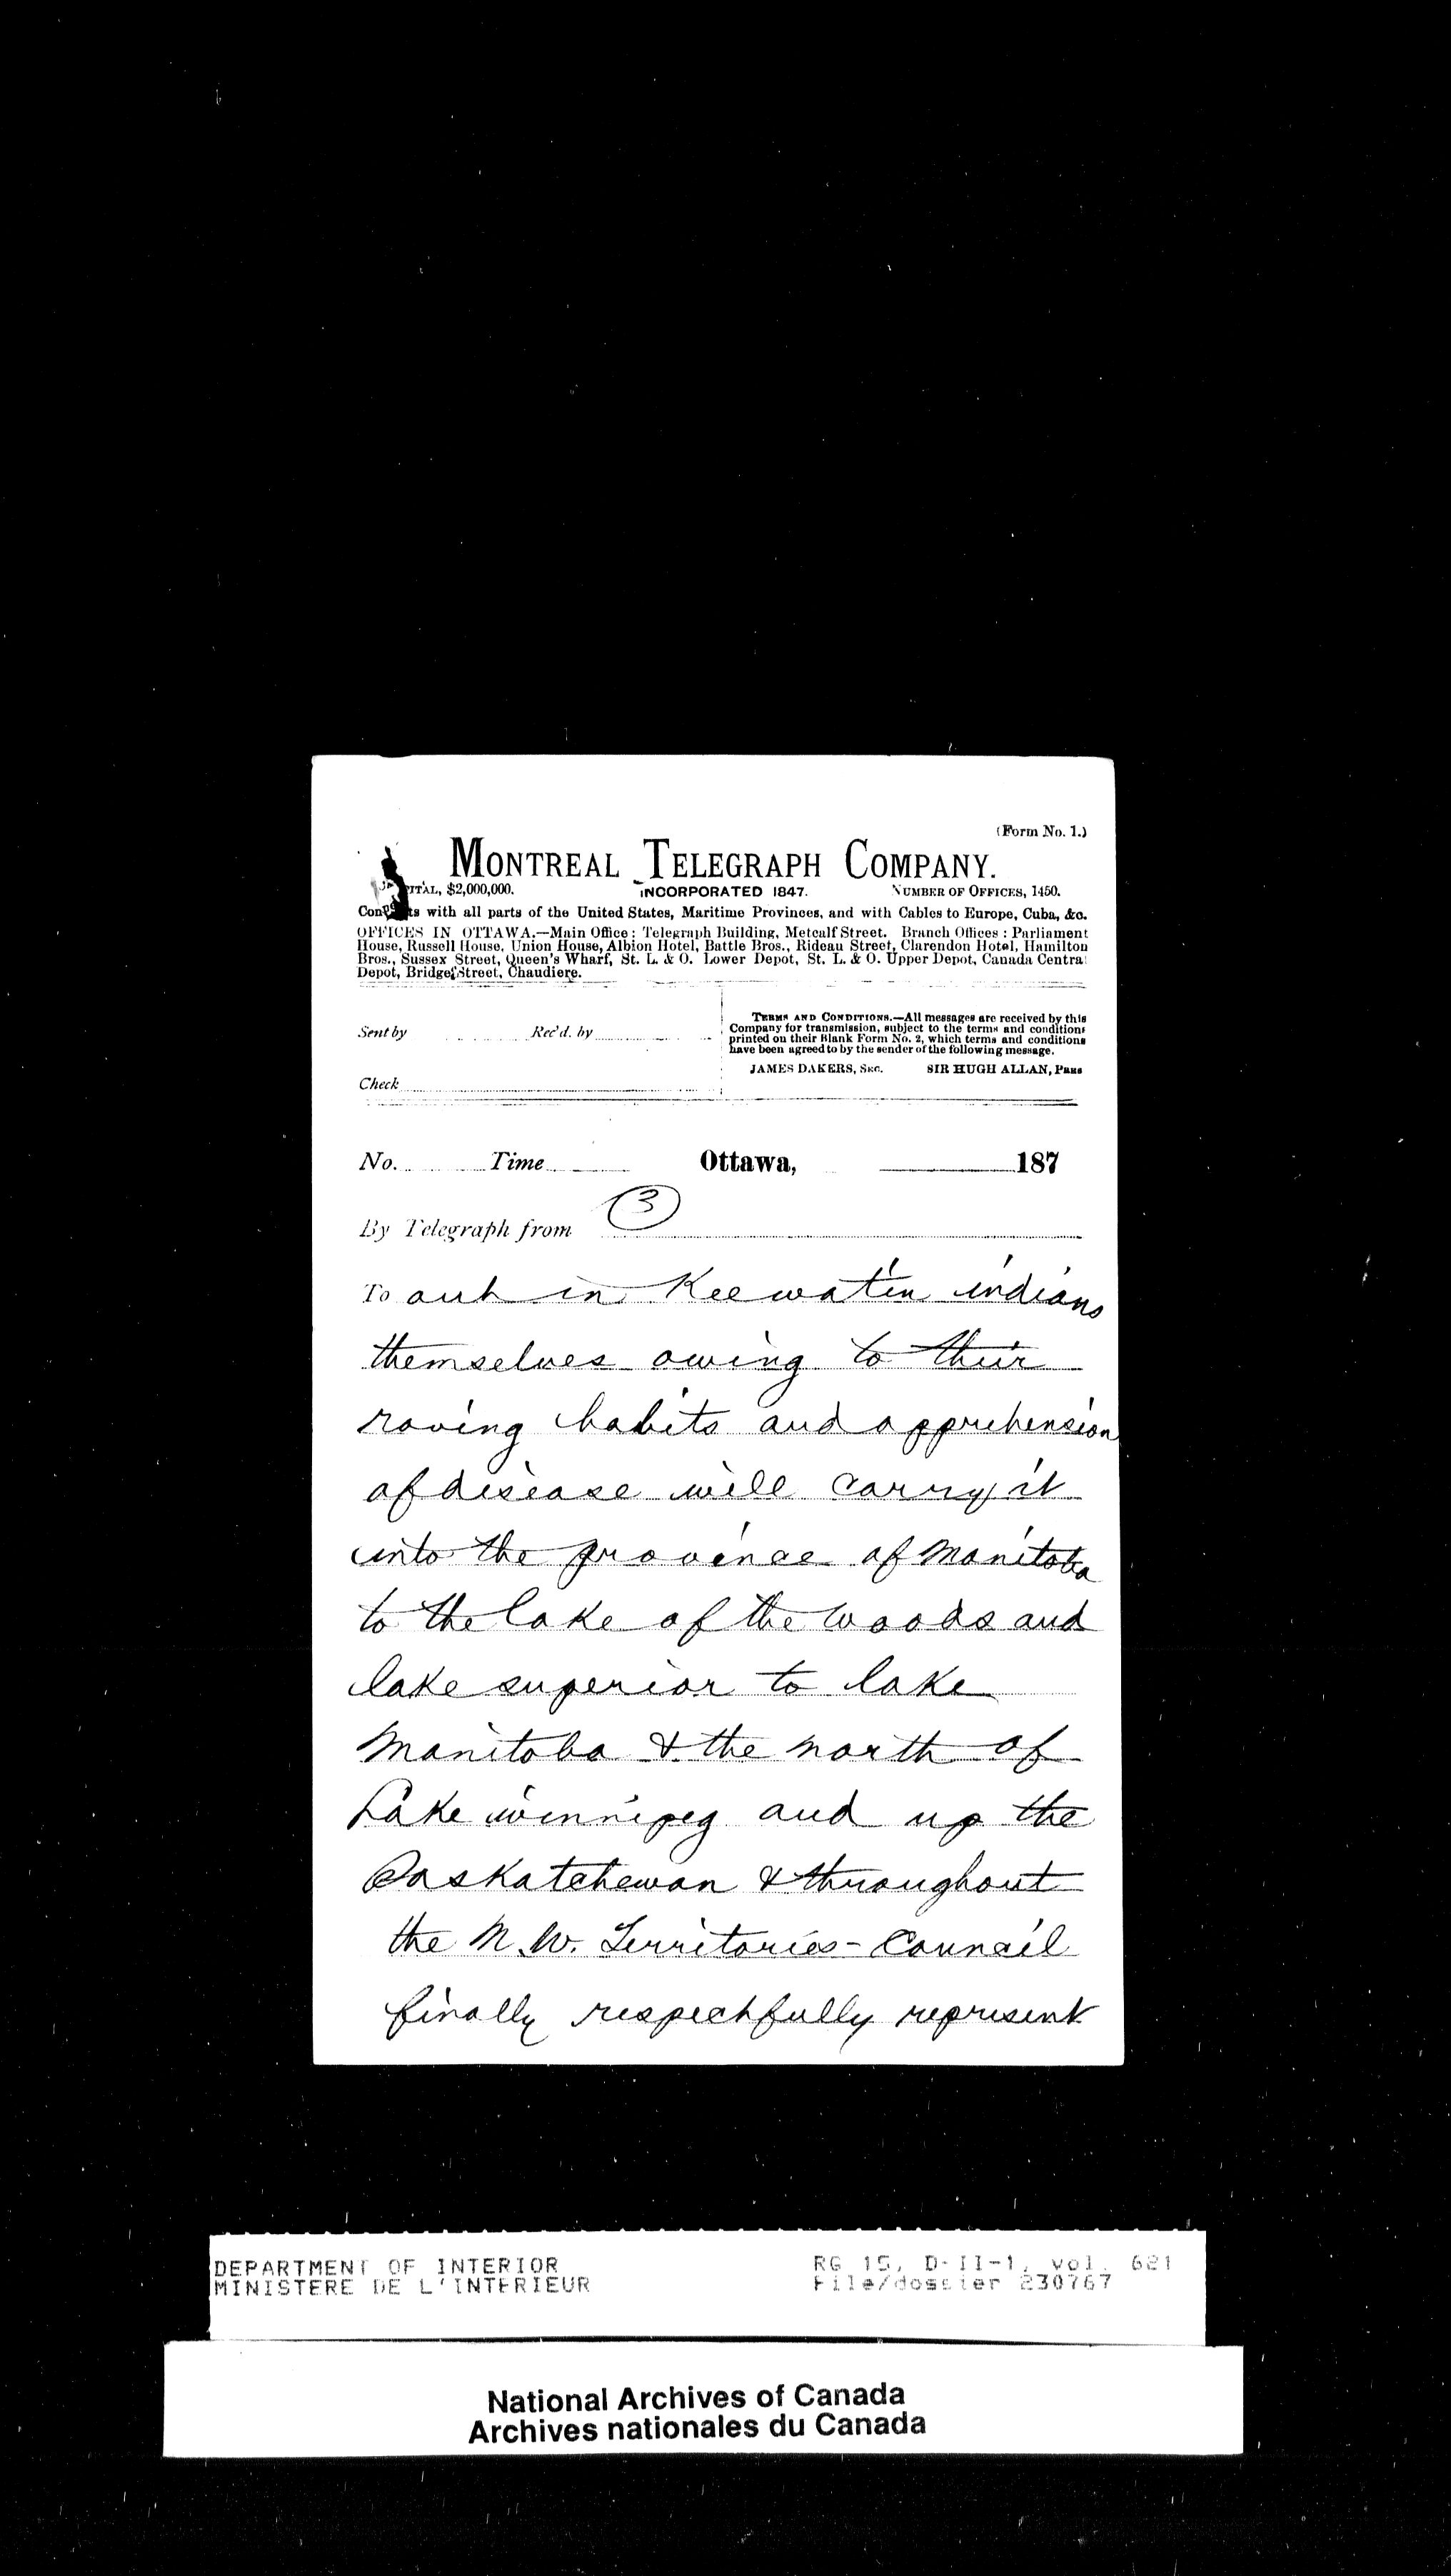 (Form No. 1.)
MONTREAL TELEGRAPH COMPANY.
$2,000,000. INCORPORATED 1847. NUMBER OF OFFICES, 1450.
with all parts of the United States, Maritime Provinces, and with Cables to Europe, Cuba, &c.
OFFICES IN OTTAWA.—Main Office: Telegraph Building, Metcalf Street. Branch Offices: Parliament
House, Russell House, Union House, Albion Hotel, Battle Bros., Rideau Street, Clarendon Hotel, Hamilton
Bros., Sussex Street, Queen's Wharf, St. L. & O. Lower Depot, St. L. & O. Upper Depot, Canada Central
Depot, Bridge Street, Chaudiere.
Sent by Rec'd. by
Check
TERMS AND CONDITIONS.—All messages are received by this
Company for transmission, subject to the terms and conditions
printed on their Blank Form No. 2, which terms and conditions
have been agreed to by the sender of the following message.
JAMES DAKERS, SEC. SIR HUGH ALLAN, PRES
No. Time Ottawa, 187
3
By Telegraph from
To out in Keewatin indians
themselves owing to their
roving habits and apprehension
of disease will carry it
into the province of Manitoba
to the lake of the woods and
lake superior to lake
Manitoba & the north of
Lake winnipeg and up the
Saskatchewan & throughout
the N.W. Territories - Council
finally respectfully represent
DEPARTMENT OF INTERIOR
MINISTERE DE L'INTERIEUR
RG 15, D-II-1, vol. 621
File/dossier 230767
National Archives of Canada
Archives nationales du Canada